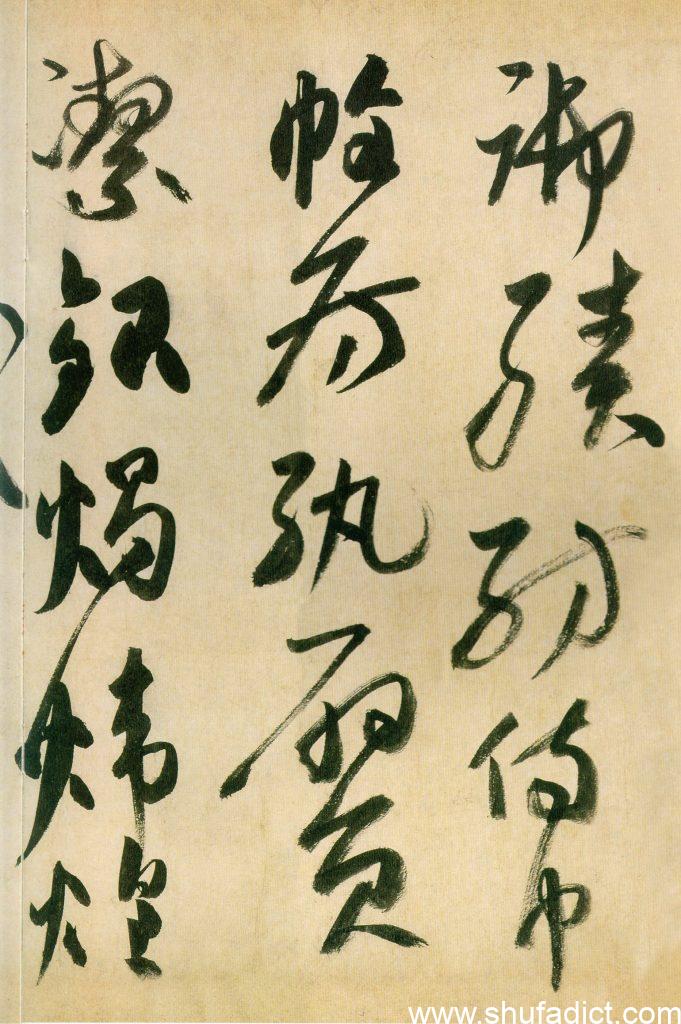 御績紡侍巾
帷房紈扇員
潔銀燭煒煌
www.shufadict.com